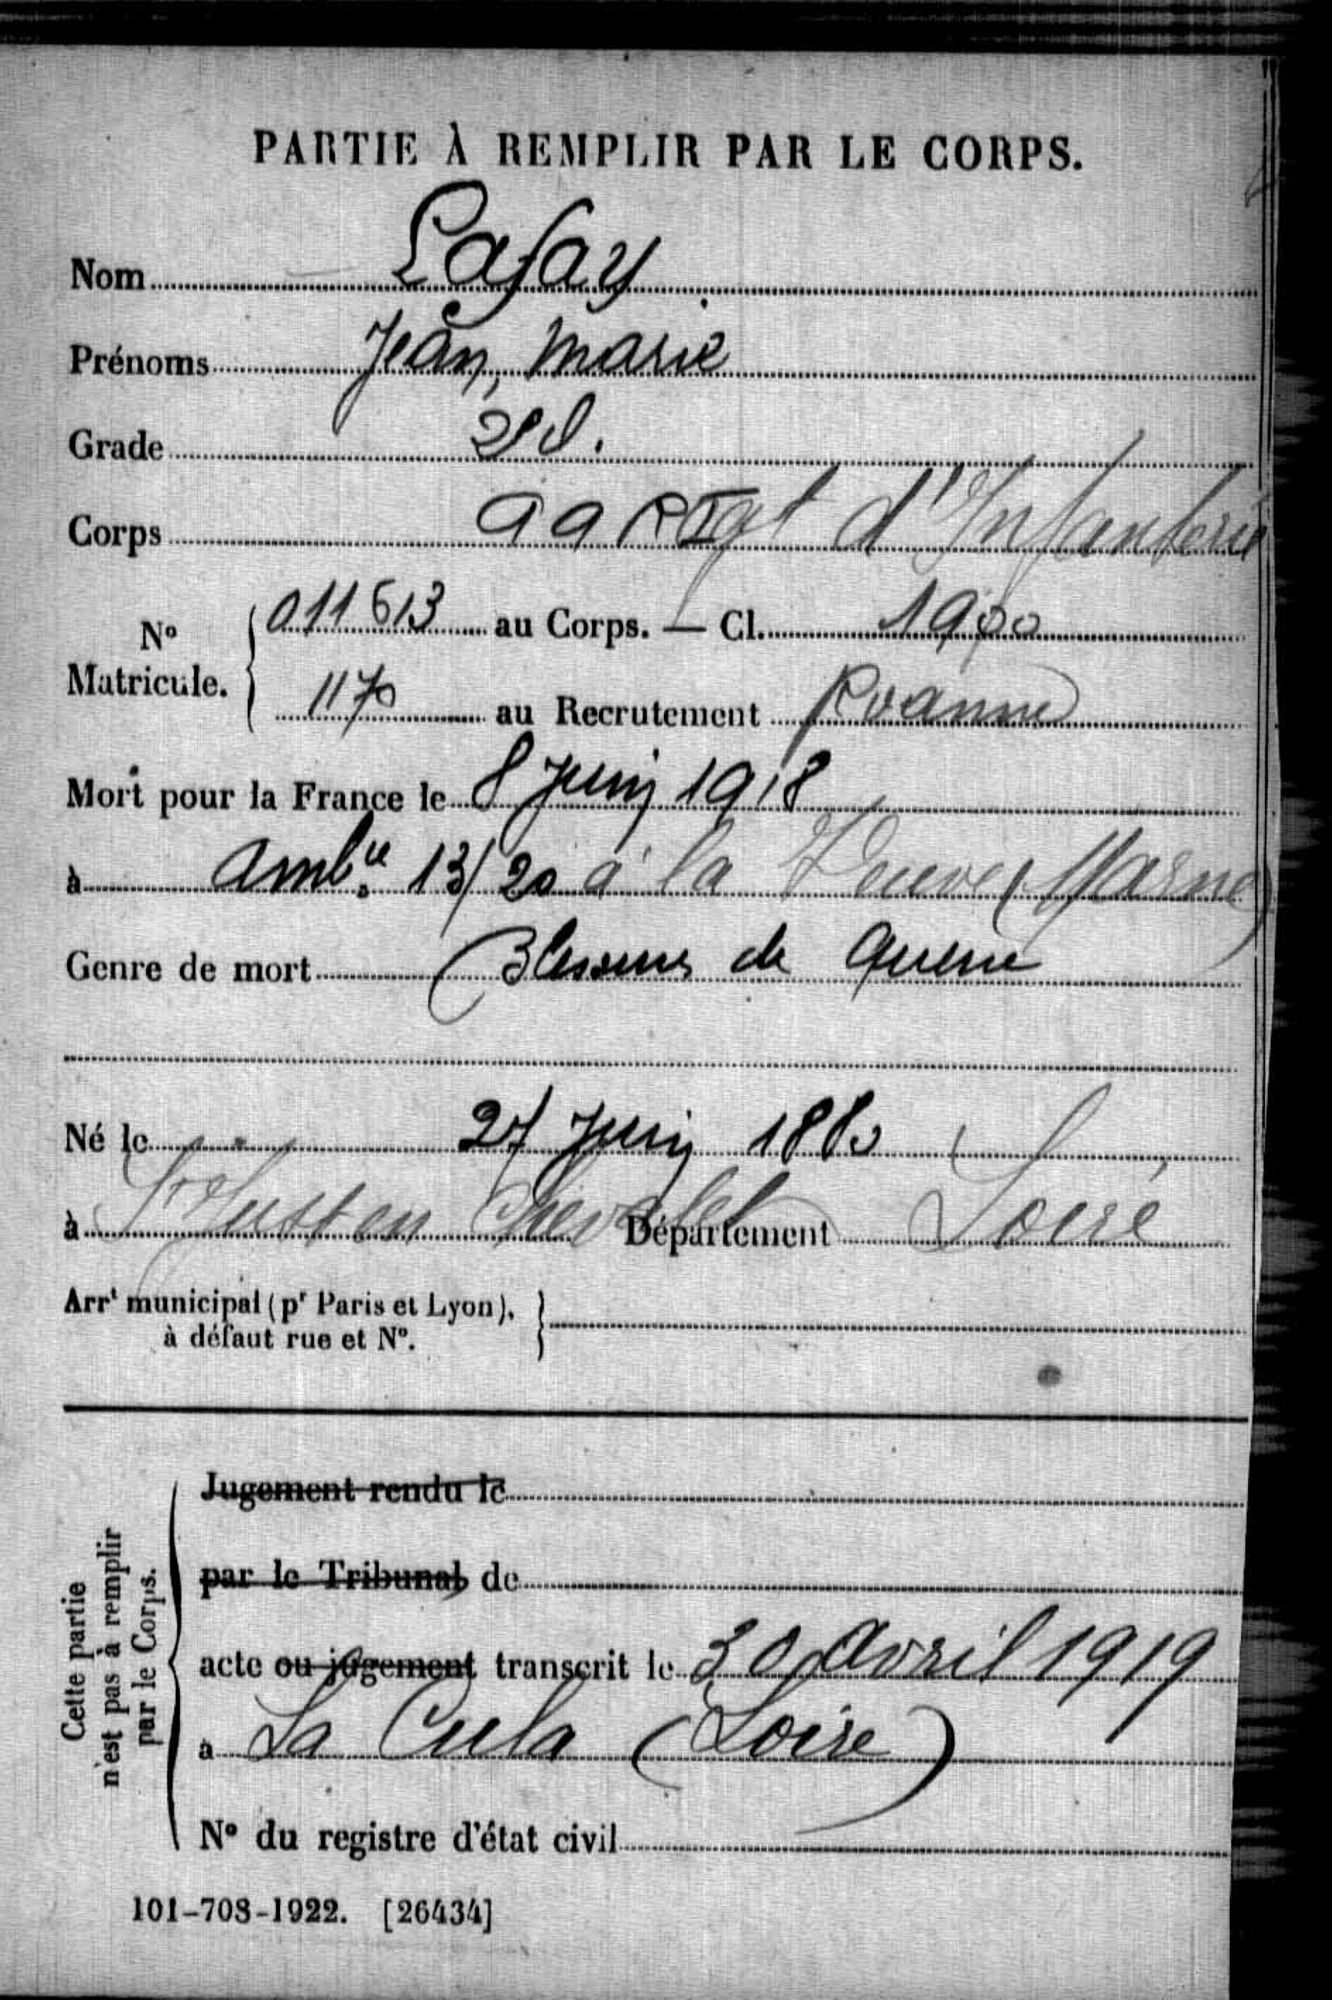 PARTIE À REMPLIR PAR LE CORPS.
Nom Lafay
Prénoms Jean, Marie
Grade
Corps 99 RI gt d'Infanterie
N° Matricule. 011613 au Corps. — Cl. 1900
1170 au Recrutement Roanne
Mort pour la France le 8 Juin 1918
à ambce 13/20 à la Veuve (Marne)
Genre de mort Blessures de Guerre
Né le 27 Juin 1880
à St Just en Chevalet Département Loire
Arrt municipal (pr Paris et Lyon),
à défaut rue et N°.
Cette partie n'est pas à remplir par le Corps.
Jugement rendu le
par le Tribunal de
acte ou jugement transcrit le 30 Avril 1919
à La Cula (Loire)
N° du registre d'état civil
101-708-1922. [26434]